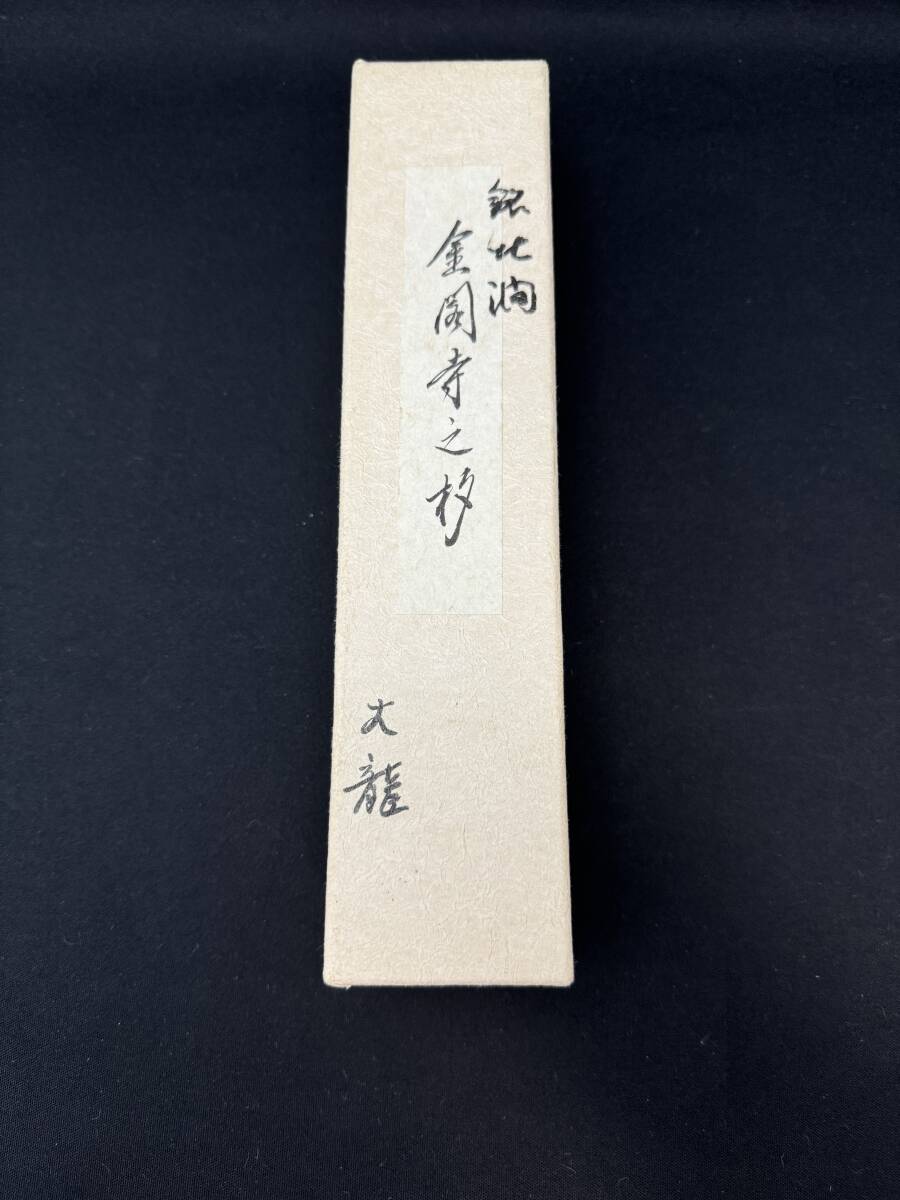 銘北澗
金閣寺之杉
大龍